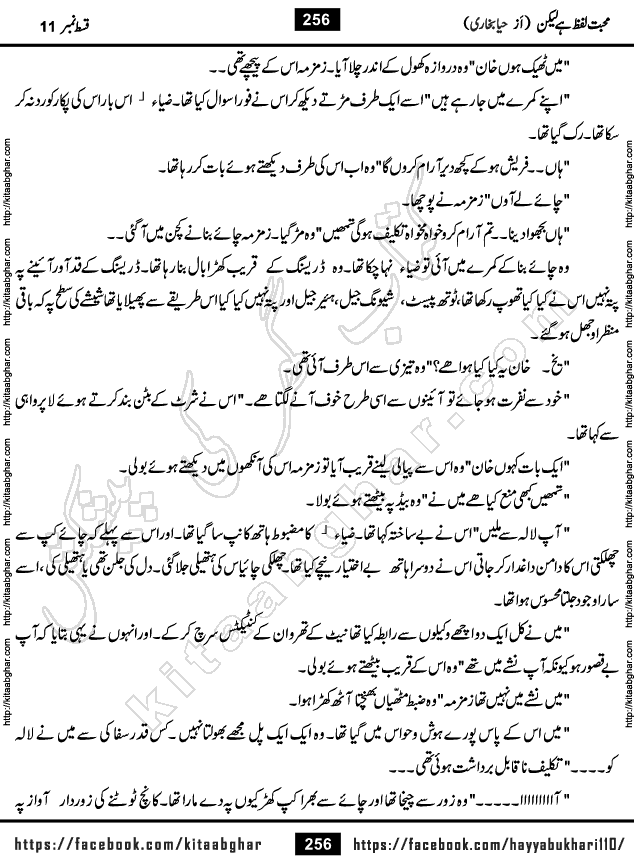 محبت لفظ ہے لیکن (از حیا بخاری) 256 قسط نمبر 11
"میں ٹھیک ہوں خان" وہ دروازہ کھول کے اندر چلا آیا۔ زمزمہ اس کے پیچھے تھی۔۔
"اپنے کمرے میں جا رہے ہیں" اسے ایک طرف مڑتے دیکھ کر اس نے فوراً سوال کیا تھا۔ ضیاء اس بار اس کی پکار کو رد نہ کر
سکا تھا۔ رک گیا تھا۔
"ہاں۔۔ فریش ہو کے کچھ دیر آرام کروں گا" وہ اب اس کی طرف دیکھتے ہوئے بات کر رہا تھا۔
"چائے لے آوں" زمزمہ نے پوچھا۔
"ہاں بھجوا دینا۔۔ تم آرام کرو خواہ مخواہ تکلیف ہو گی تمھیں" وہ مڑ گیا۔ زمزمہ چائے بنانے کچن میں آ گئی۔۔
وہ چائے بنا کے کمرے میں آئی تو ضیاء نہا چکا تھا۔ وہ ڈریسنگ کے قریب کھڑا بال بنا رہا تھا۔ ڈریسنگ کے قد آور آئینے پہ
پتہ نہیں اس نے کیا کیا تھوپ رکھا تھا، ٹوتھ پیسٹ، شیونگ جیل، ہئیر جیل اور پتہ نہیں کیا کیا اس طریقے سے پھیلایا تھا شیشے کی سطح پہ کہ باقی
منظر اوجھل ہو گئے۔
"یخ۔ خان یہ کیا کیا ہوا ھے؟" وہ تیزی سے اس طرف آئی تھی۔
"خود سے نفرت ہو جائے تو آئینوں سے اسی طرح خوف آنے لگتا ھے۔" اس نے شرٹ کے بٹن بند کرتے ہوئے لا پرواہی
سے کہا تھا۔
"ایک بات کہوں خان" وہ اس سے پیالی لینے قریب آیا تو زمزمہ اس کی آنکھوں میں دیکھتے ہوئے بولی۔
"تمھیں کبھی منع کیا ھے میں نے" وہ بیڈ پہ بیٹھتے ہوئے بولا۔
"آپ لالہ سے ملیں" اس نے بے ساختہ کہا تھا۔ ضیاء کا مضبوط ہاتھ کانپ سا گیا تھا۔ اور اس سے پہلے کہ چائے کپ سے
چھلکتی اس کا دامن داغدار کر جاتی اس نے دوسرا ہاتھ بے اختیار نیچے کیا تھا۔ چھلکی چائیاس کی ہتھیلی جلا گئی۔ دل کی جلن تھی یا ہتھیلی کی، اسے
سارا وجود جلتا محسوس ہوا تھا۔
"میں نے کل ایک دو اچھے وکیلوں سے رابطہ کیا تھا نیٹ کے تھرو ان کے کنٹیکٹس سرچ کر کے۔ اور انہوں نے یہی بتایا کہ آپ
بے قصور ہو کیونکہ آپ نشے میں تھے" وہ اس کے قریب بیٹھتے ہوئے بولی۔
"میں نشے میں نہیں تھا زمزمہ" وہ ضبط مٹھیاں بھینچتا اٹھ کھڑا ہوا۔
"میں اس کے پاس پورے ہوش و حواس میں گیا تھا۔ وہ ایک ایک پل مجھے بھولتا نہیں۔ کس قدر سفا کی سے میں نے لالہ
کو۔۔۔۔" تکلیف نا قابل برداشت ہوئی تھی۔۔۔
"آااااااااا۔۔۔۔۔" وہ زور سے چیخا تھا اور چائے سے بھرا کپ کھڑکیوں پہ دے مارا تھا۔ کانچ ٹوٹنے کی زوردار آواز پہ
https://facebook.com/kitaabghar 256 https://facebook.com/hayyabukhari110/
http://kitaabghar.com http://kitaabghar.com http://kitaabghar.com http://kitaabghar.com http://kitaabghar.com http://kitaabghar.com
http://kitaabghar.com http://kitaabghar.com http://kitaabghar.com http://kitaabghar.com http://kitaabghar.com http://kitaabghar.com
کتاب گھر کی پیشکش
kitaabghar.com